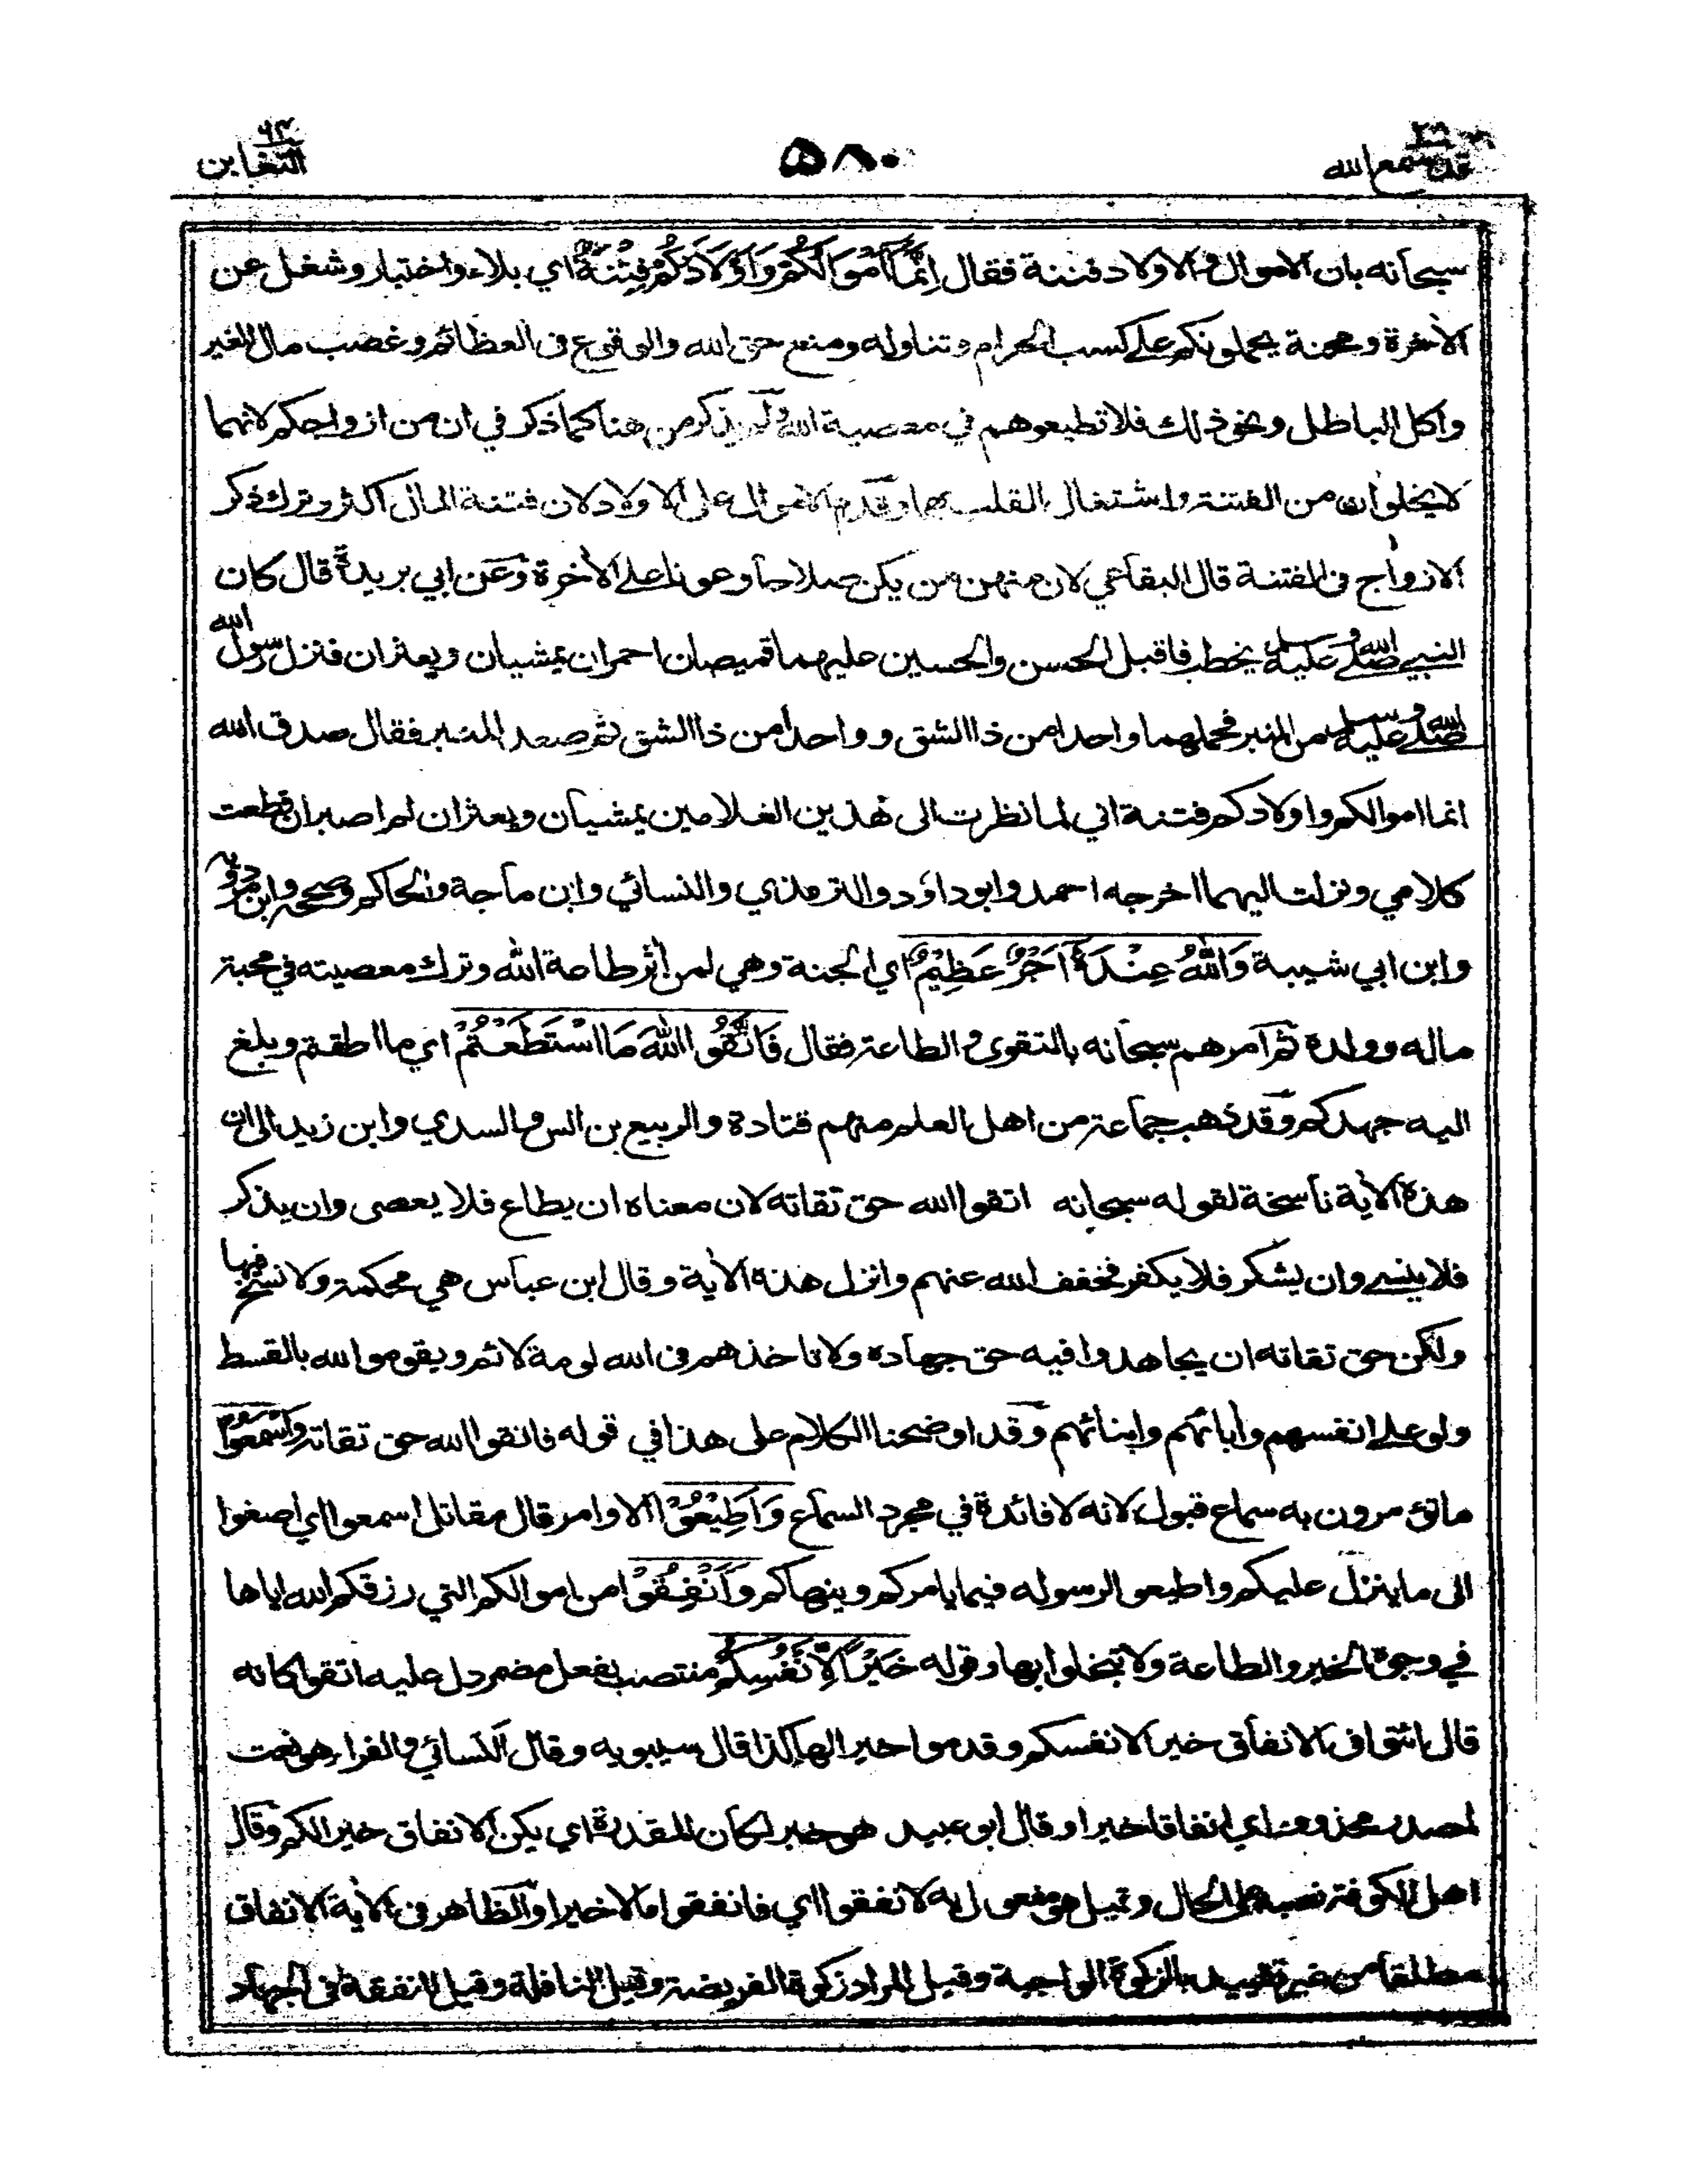 قد سمع الله ٢٨
٥٨٠
التغابن ٦٤
سبحانه بان الاموال والاولاد فتنة فقال اِنَّمَا اَمْوَالُكُمْ وَاَوْلَادُكُمْ فِتْنَةٌ اي بلاء واختبار وشغل عن
الأخرة ومحنة يحملونكم على كسب الحرام وتناوله ومنع حق الله والوقوع فى العظائم وغصب مال الغير
واكل الباطل ونحو ذلك فلا تطيعوهم في معصية الله ولم يذكر من هنا كما ذكر في ان من ازواجكم لانهما
لا يخلوان من الفتنة واشتغال القلب بها وقدم الاموال على الاولاد لان فتنة المال اكثر وترك ذكر
الازواج فى الفتنة قال البقاعي لان منهن من يكن صلاحا وعونا على الأخرة وعن ابي بريدة قال كان
النبي صلى الله عليه وسلم يخطب فاقبل الحسن والحسين عليهما قميصان احمران يمشيان ويعثران فنزل رسول الله
صلى الله عليه وسلم من المنبر فحملهما واحدا من ذا الشق وواحدا من ذا الشق ثم صعد المنبر فقال صدق الله
انما اموالكم واولادكم فتنة اني لما نظرت الى هذين الغلامين يمشيان ويعثران لم اصبر ان قطعت
كلامي ونزلت اليهما اخرجه احمد وابو داؤد والترمذي والنسائي وابن ماجة والحاكم وصححه وابن مردويه
وابن ابي شيبة وَاللّٰهُ عِنْدَهٗ اَجْرٌ عَظِيْمٌ اي الجنة وهي لمن أثر طاعة الله وترك معصيته في محبة
ماله وولدة ثم امرهم سبحانه بالتقوى والطاعة فقال فَاتَّقُوا اللّٰهَ مَا اسْتَطَعْتُمْ اي ما اطقتم وبلغ
اليه جهدكم وقد ذهب جماعة من اهل العلم منهم قتادة والربيع بن انس والسدي وابن زيد الى ان
هذة الأية ناسخة لقوله سبحانه اتقوا الله حق تقاته لان معناه ان يطاع فلا يعصى وان يذكر
فلا ينسى وان يشكر فلا يكفر فخفف الله عنهم وانزل هذه الأية وقال ابن عباس هي محكمة ولا نسخ فيها
ولكن حق تقاته ان يجاهدوا فيه حق جهاده ولا تاخذهم فى الله لومة لائم ويقوموا لله بالقسط
ولو على انفسهم وأبائهم وابنائهم وقد اوضحنا الكلام على هذا في قوله فاتقوا الله حق تقاته وَاسْمَعُوْا
ما تؤمرون به سماع قبول لانه لا فائدة في مجرد السماع وَاَطِيْعُوْا الاوامر قال مقاتل اسمعوا اي اصغوا
الى ما ينزل عليكم واطيعوا لرسوله فيما يامركم وينهاكم وَاَنْفِقُوْا من اموالكم التي رزقكم الله اياها
في وجوة الخير والطاعة ولا تبخلوا بها وقوله خَيْرًا لِّاَنْفُسِكُمْ منتصب بفعل مضمر دل عليه اتقوا كانه
قال ائتوا فى الانفاق خيرا لانفسكم وقدموا خيرا لها كذا قال سيبويه وقال الكسائي والفراء هو نعت
لمصدر محذوف اي انفاقا خيرا وقال ابو عبيد هو خبر لكان المقدرة اي يكن الانفاق خيرا لكم وقال
اهل الكوفة نصبه على الحال وقيل هو مفعول به لانفقوا اي فانفقوا مالا خيرا والظاهر فى الأية الانفاق
مطلقا من غير تقييد بالزكوة الواجبة وقيل المراد زكوة الفريضة وقيل النافلة وقيل النفقة فى الجهاد